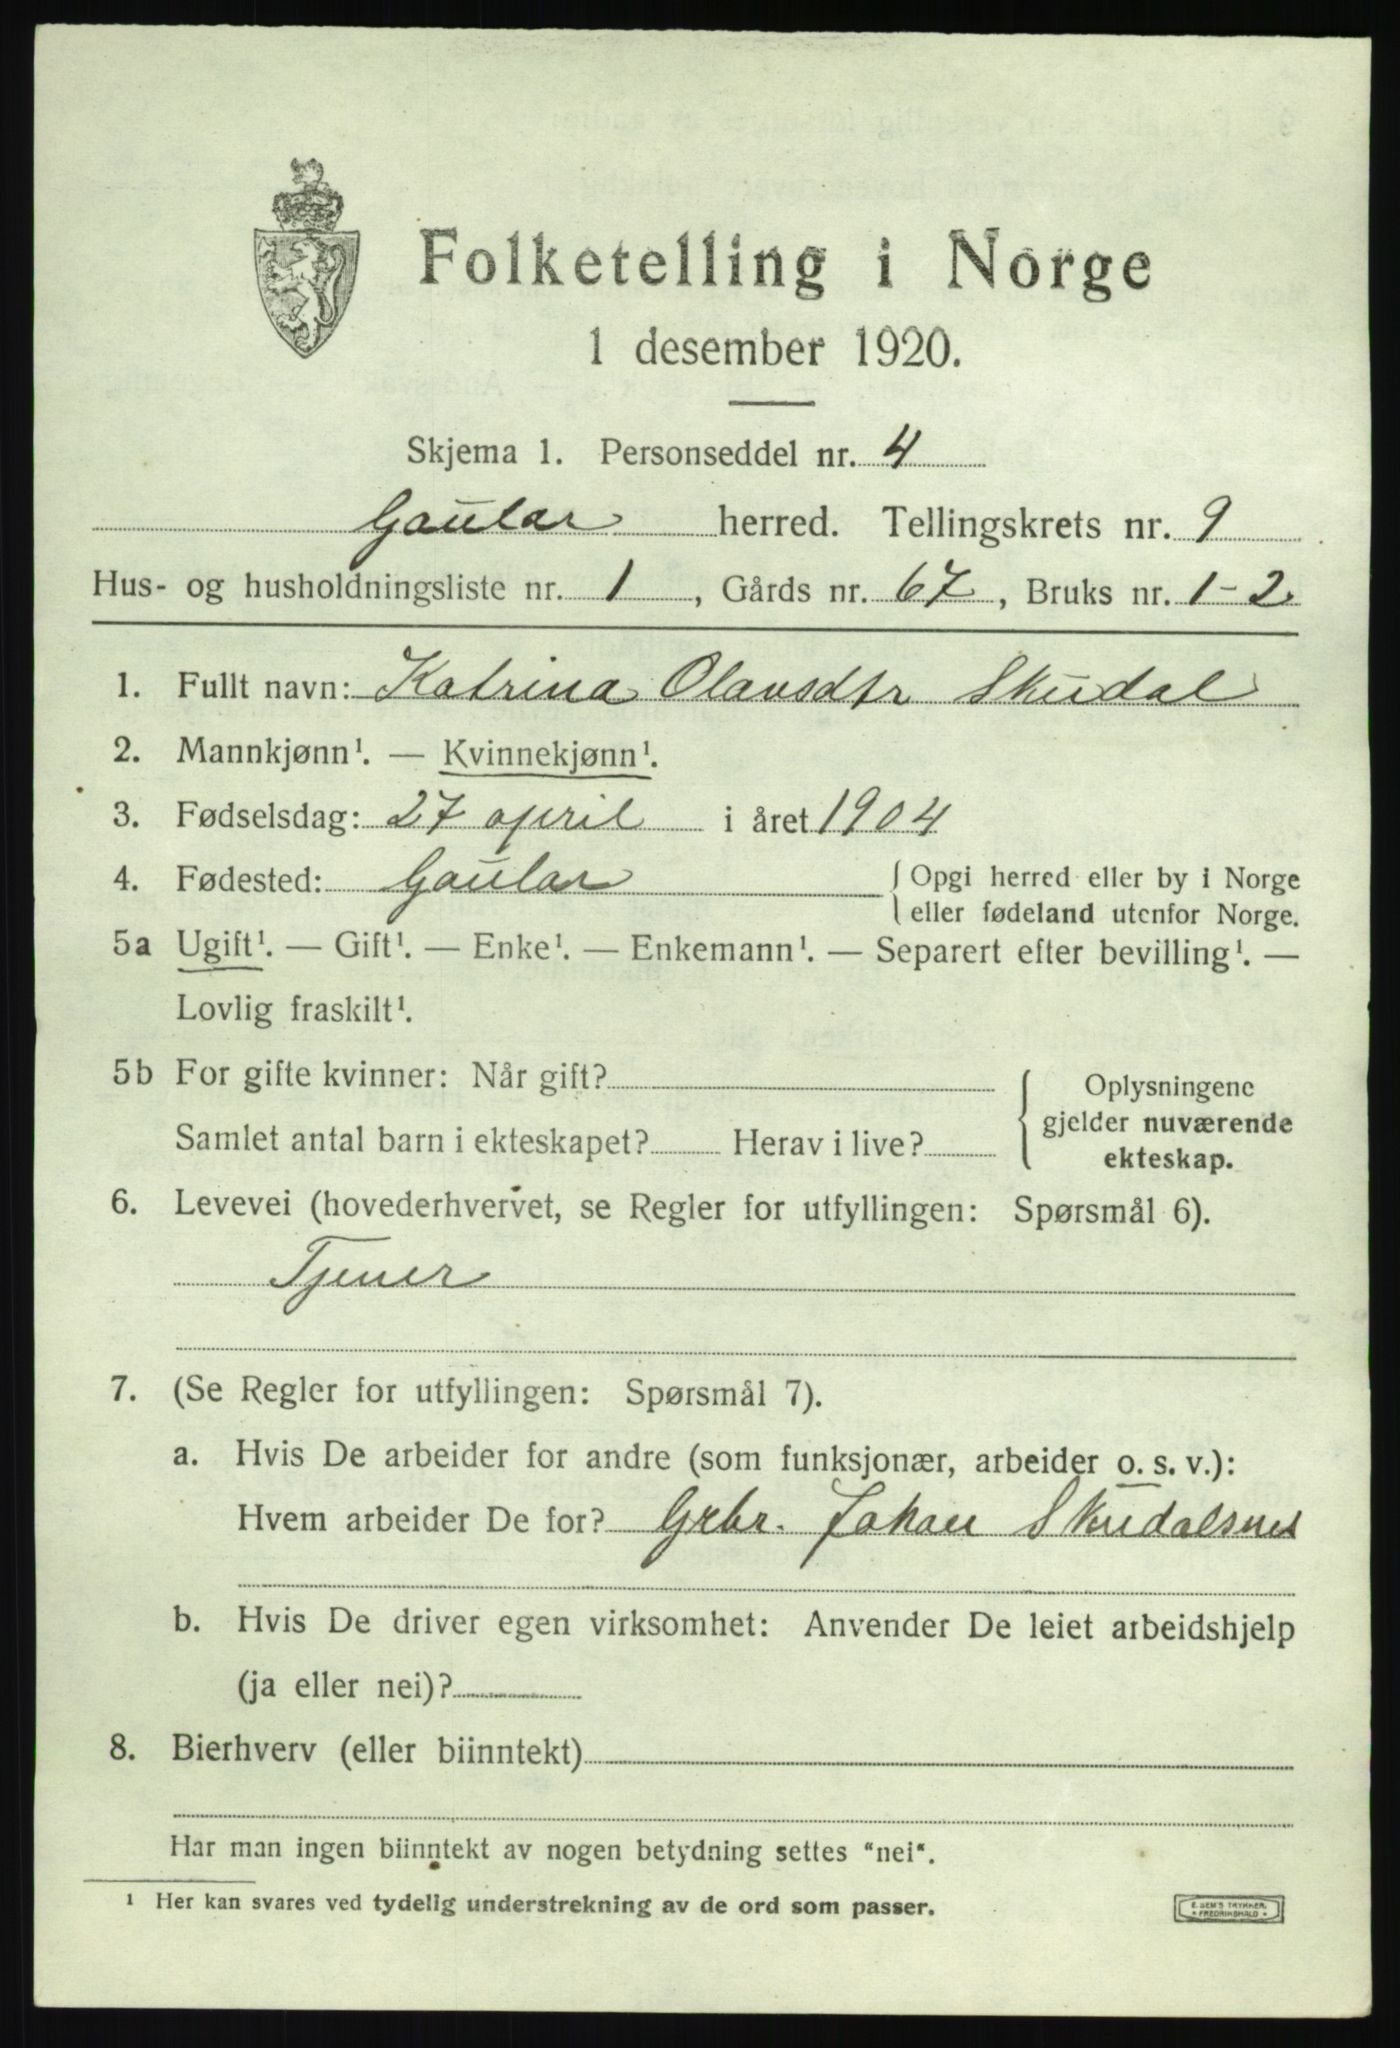 Folketelling i Norge
1 desember 1920.
Skjema 1. Personseddel nr. 4
Gaular herred. Tellingskrets nr. 9
Hus- og husholdningsliste nr. 1, Gårds nr. 67, Bruks nr. 1-2.
1. Fullt navn: Katrina Olavsdtr Skudal
2. Mannkjønn¹. — Kvinnekjønn¹.
3. Fødselsdag: 27 april i året 1904
4. Fødested: Gaular { Opgi herred eller by i Norge
eller fødeland utenfor Norge.
5a Ugift¹. — Gift¹. — Enke¹. — Enkemann¹. — Separert efter bevilling¹. —
Lovlig fraskilt¹.
5b For gifte kvinner: Når gift?
Samlet antal barn i ekteskapet? Herav i live?
Oplysningene
gjelder nuværende
ekteskap.
6. Levevei (hovederhvervet, se Regler for utfyllingen: Spørsmål 6).
Tjener
7. (Se Regler for utfyllingen: Spørsmål 7).
a. Hvis De arbeider for andre (som funksjonær, arbeider o. s. v.):
Hvem arbeider De for? Grbr. Johan Skudalsnes
b. Hvis De driver egen virksomhet: Anvender De leiet arbeidshjelp
(ja eller nei)?
8. Bierhverv (eller biinntekt)
Har man ingen biinntekt av nogen betydning settes "nei".
¹ Her kan svares ved tydelig understrekning av de ord som passer.
E. SEM'S TRYKKERI
• FREDRIKSHALD •